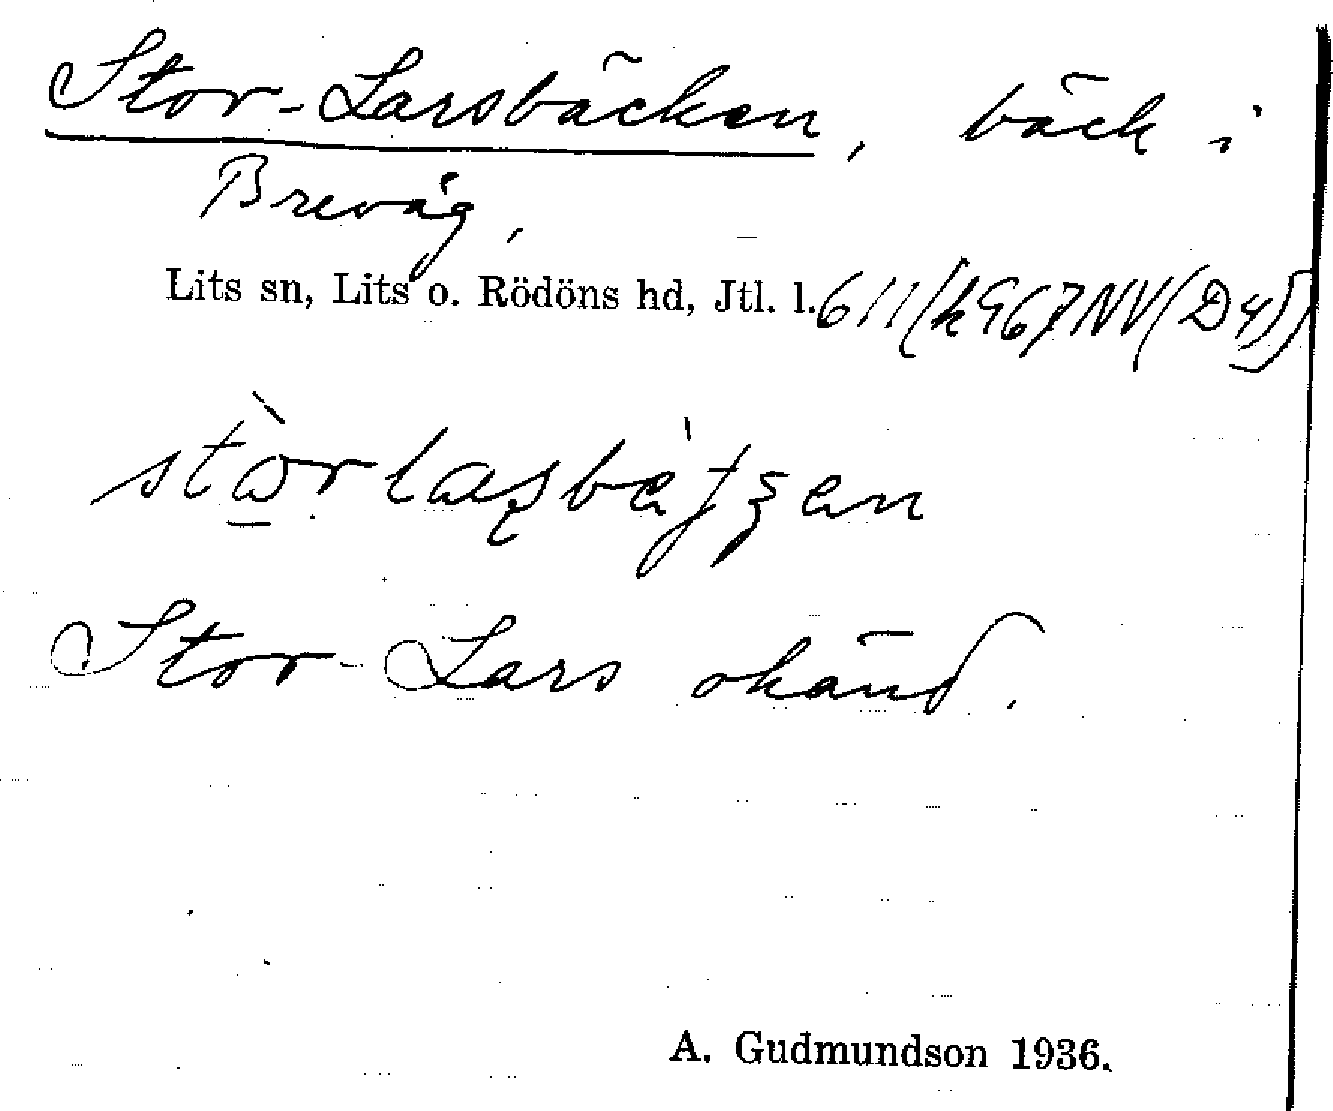 Stor-Larsbäcken, bäck i
Brevåg,
Lits sn, Lits o. Rödöns hd, Jtl. l. 611/k967NV(D4)
Stor-Lars okänd.
A. Gudmundson 1936.